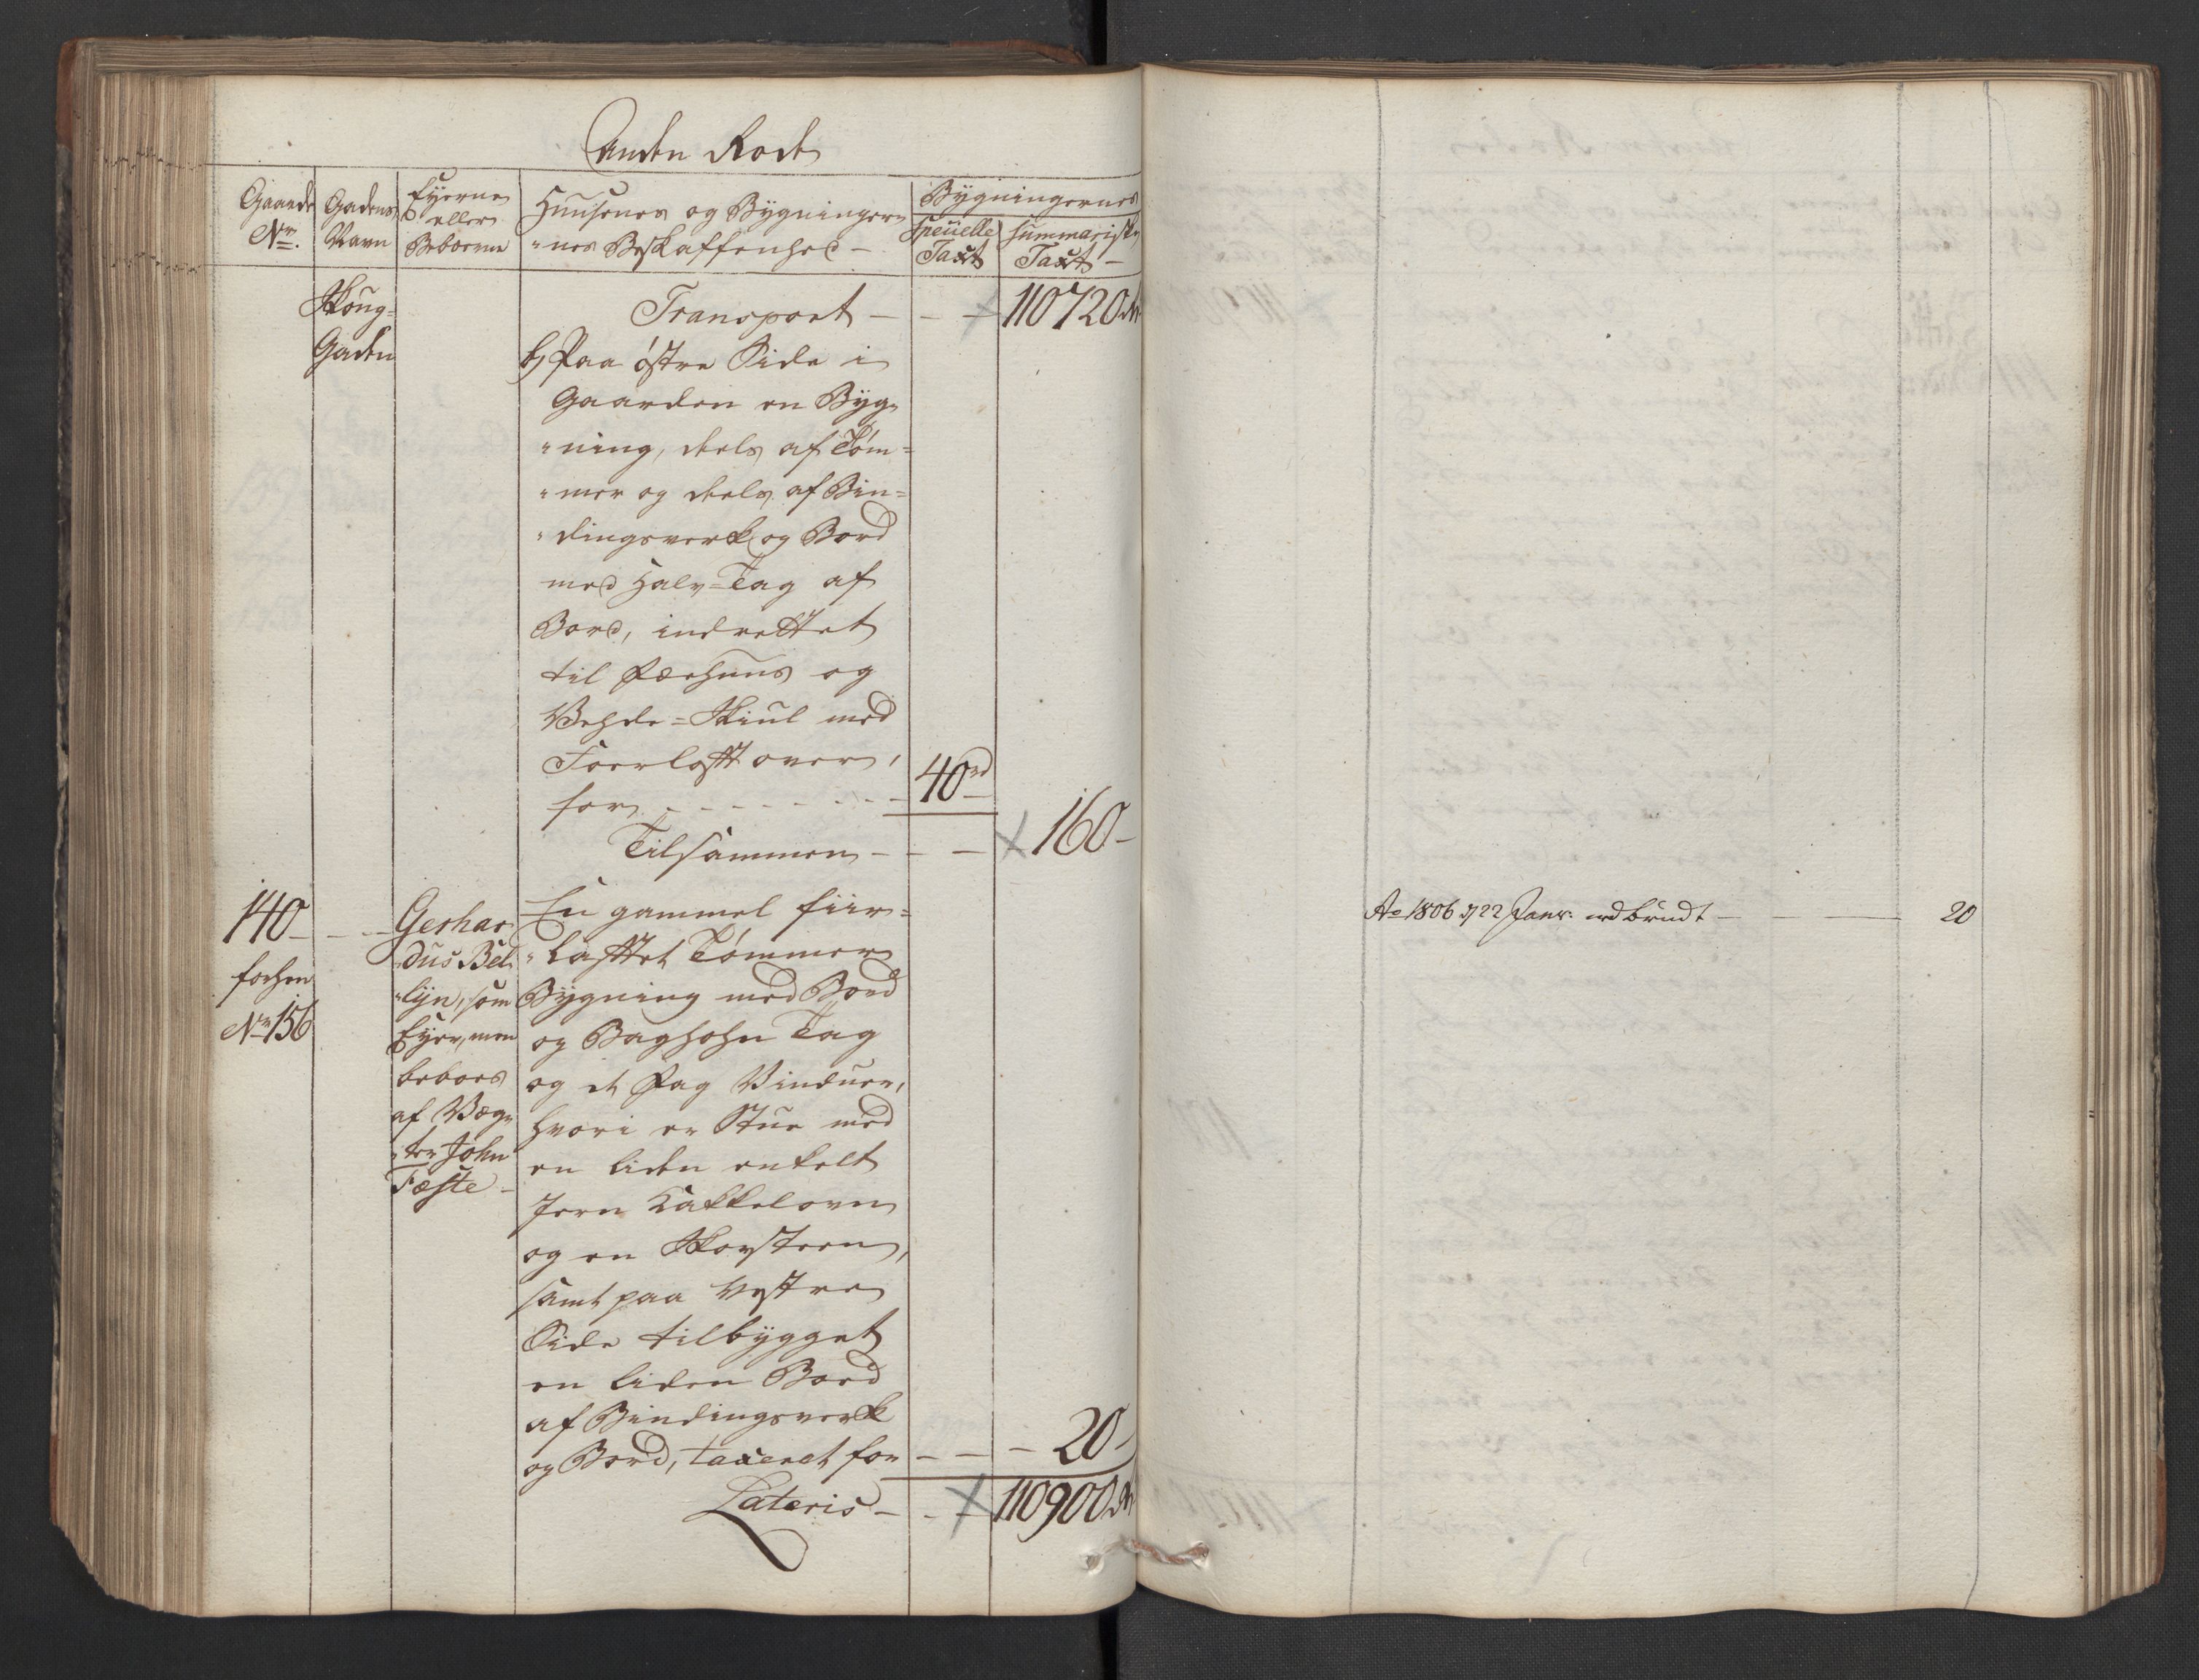 Anden Rode
Gaarde Nr.
Gadens Navn
Eyerne eller Beboerne
Huusenes og Bygninger-
"nes Beskaffenhed -
Bygningernes
Specielle Taxt
Summariske Taxt -
Skoug=
Gaden
Transport - - - 110720 rd
b) Paa östre Side i
Gaarden en Byg-
"ning, deels af Töm=
"mer og deels af Bin=
"dingsverk og Bord
med Halv=Tag af
Bord, indrettet
til Fæehuus og
Vehde=Skiul med
Foerlofft over,
for - - - - - - - 40 rd
Tilsammen - - - 160 -
140 - - -
forhen
Nr 156
Gerhar-
"dus Bel-
"lyn, som
Eyer, men
beboes
af Væg-
"ter John
Fæste -
En gammel fiir=
"lafftet Tömmer
Bygning med Bord
og Baghohn Tag
og et Fag Vinduer,
hvori er Stue med
en liden enkelt
Jern Kakkelovn
og en Skorsteen,
samt paa Vestre
Side tilbygget
en liden Bord
af Bindingsverk
og Bord, taxeret for - - - 20 -
Lateris - - - 110900 rd
Ao 1806 d 22 Janr. nedbrudt - - - 20